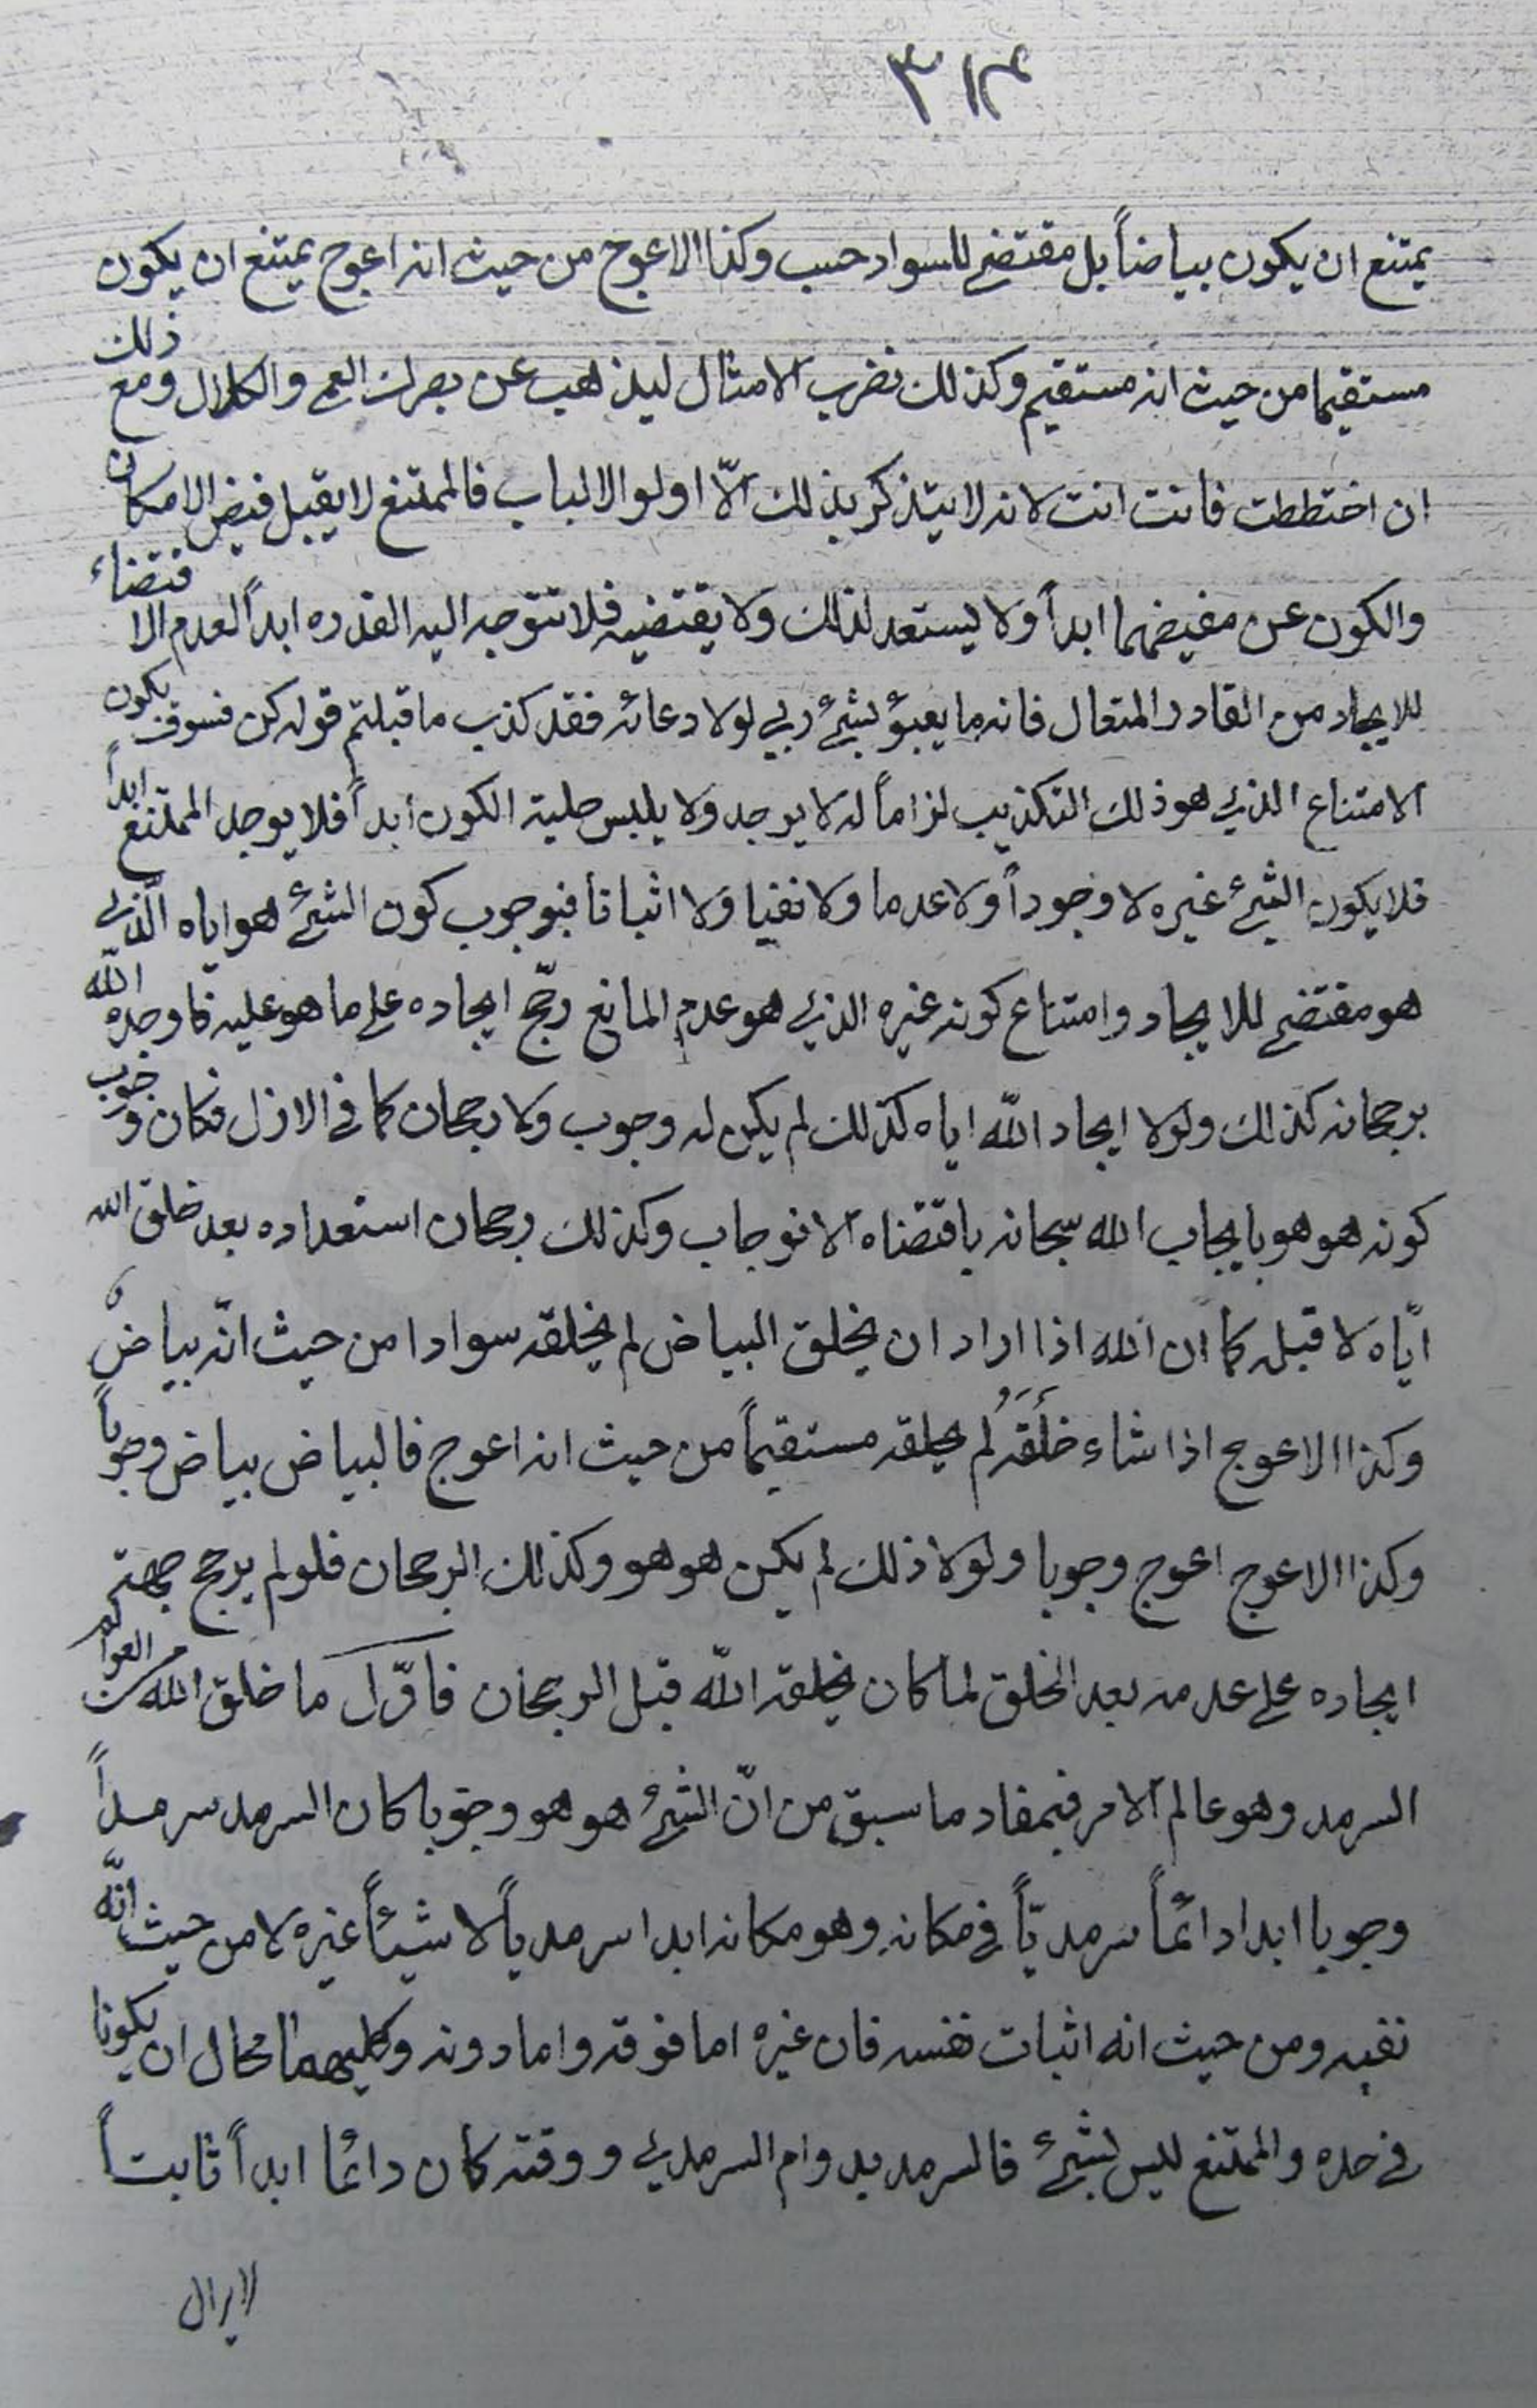 ٣١٤
يمتنع ان يكون بياضاً بل مقتضي للسواد حسب وكذا الاعوج من حيث انه اعوج يمتنع ان يكون
مستقيما من حيث انه مستقيم وكذلك نضرب الامثال ليذهب عن بصرك العمي والكلال ومع ذلك
ان اختططت فانت انت لانه لا يتذكر بذلك الّا اولوا الالباب فالممتنع لا يقبل فيض الامكان
والكون عن مفيضهما ابداً ولا يستعد لذلك ولا يقتضيه فلا تتوجه اليه القدره ابداً لعدم الاقتضاء
للايجاد من القادر المتعال فانه ما يعبؤ بشئ ربي لولا دعائه فقد كذب ما قبلتم قوله كن فسوف يكون
الامتناع الذي هو ذلك التكذيب لزاماً له لا يوجد ولا يلبس حلية الكون أبداً فلا يوجد الممتنع ابداً
فلا يكون الشئ غيره لا وجوداً ولا عدما ولا نفيا ولا اثباتا فبوجوب كون الشئ هو اياه الّذي
هو مقتضي للايجاد وامتناع كونه غيره الذي هو عدم المانع رجّح ايجاده علي ما هو عليه فاوجده الله
برجحانه كذلك ولولا ايجاد الله اياه كذلك لم يكن له وجوب ولا رجحان كما في الازل فكان وجوب
كونه هو هو بايجاب الله سبحانه باقتضاه الانوجاب وكذلك رجحان استعداده بعد خلق الله
ايّاه لا قبله كما ان الله اذا اراد ان يخلق البياض لم يخلقه سوادا من حيث انّه بياض
وكذا الاعوج اذا شاء خلقه لم يخلقه مستقيماً من حيث انه اعوج فالبياض بياض وجوباً
وكذا الاعوج اعوج وجوبا ولولا ذلك لم يكن هو هو وكذلك الرجحان فلو لم يرجح جهة
ايجاده علي عدمه بعد الخلق لما كان يخلقه الله قبل الرجحان فاوّل ما خلق الله من العوالم
السرمد وهو عالم الامر فبمفاد ما سبق من انّ الشئ هو هو وجوبا كان السرمد سرمداً
وجوبا ابدا دائماً سرمديّاً في مكانه وهو مكانه ابدا سرمدياً لا شيئاً غيره لا من حيث انّه
نفيه ومن حيث انه اثبات نفسه فان غيره اما فوقه واما دونه وكليهما محال ان يكونا
في حده والممتنع ليس بشئ فالسرمد بدوام السرمدي ووقته كان دائما ابداً ثابتاً
لايزال